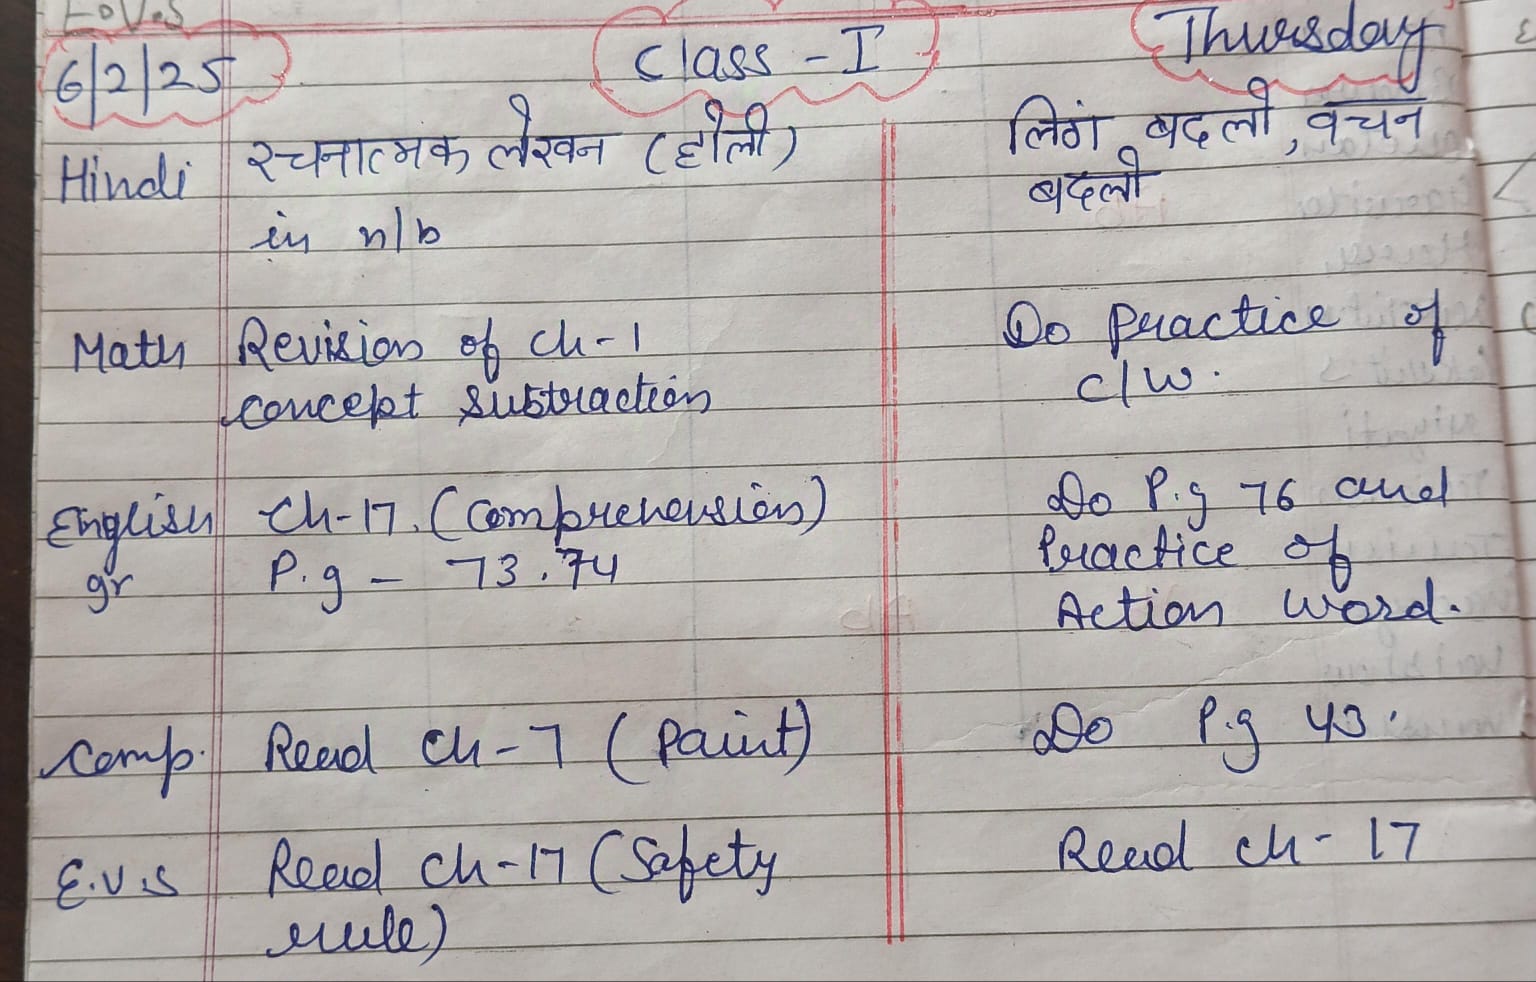 6/2/25 Class - I Thursday
Hindi रचनात्मक लेखन (होली) लिगं बदलो, वचन
in n/b बदलो
Math Revision of ch-1 Do Practice of
concept subtraction c/w.
English Ch-17. (Comprehension) Do P.g 76 and
gr P.g - 73.74 Practice of
Action word.
Comp. Read Ch-7 (Paint) Do P.g 43.
E.V.S Read Ch-17 (Safety Read ch-17
rule)